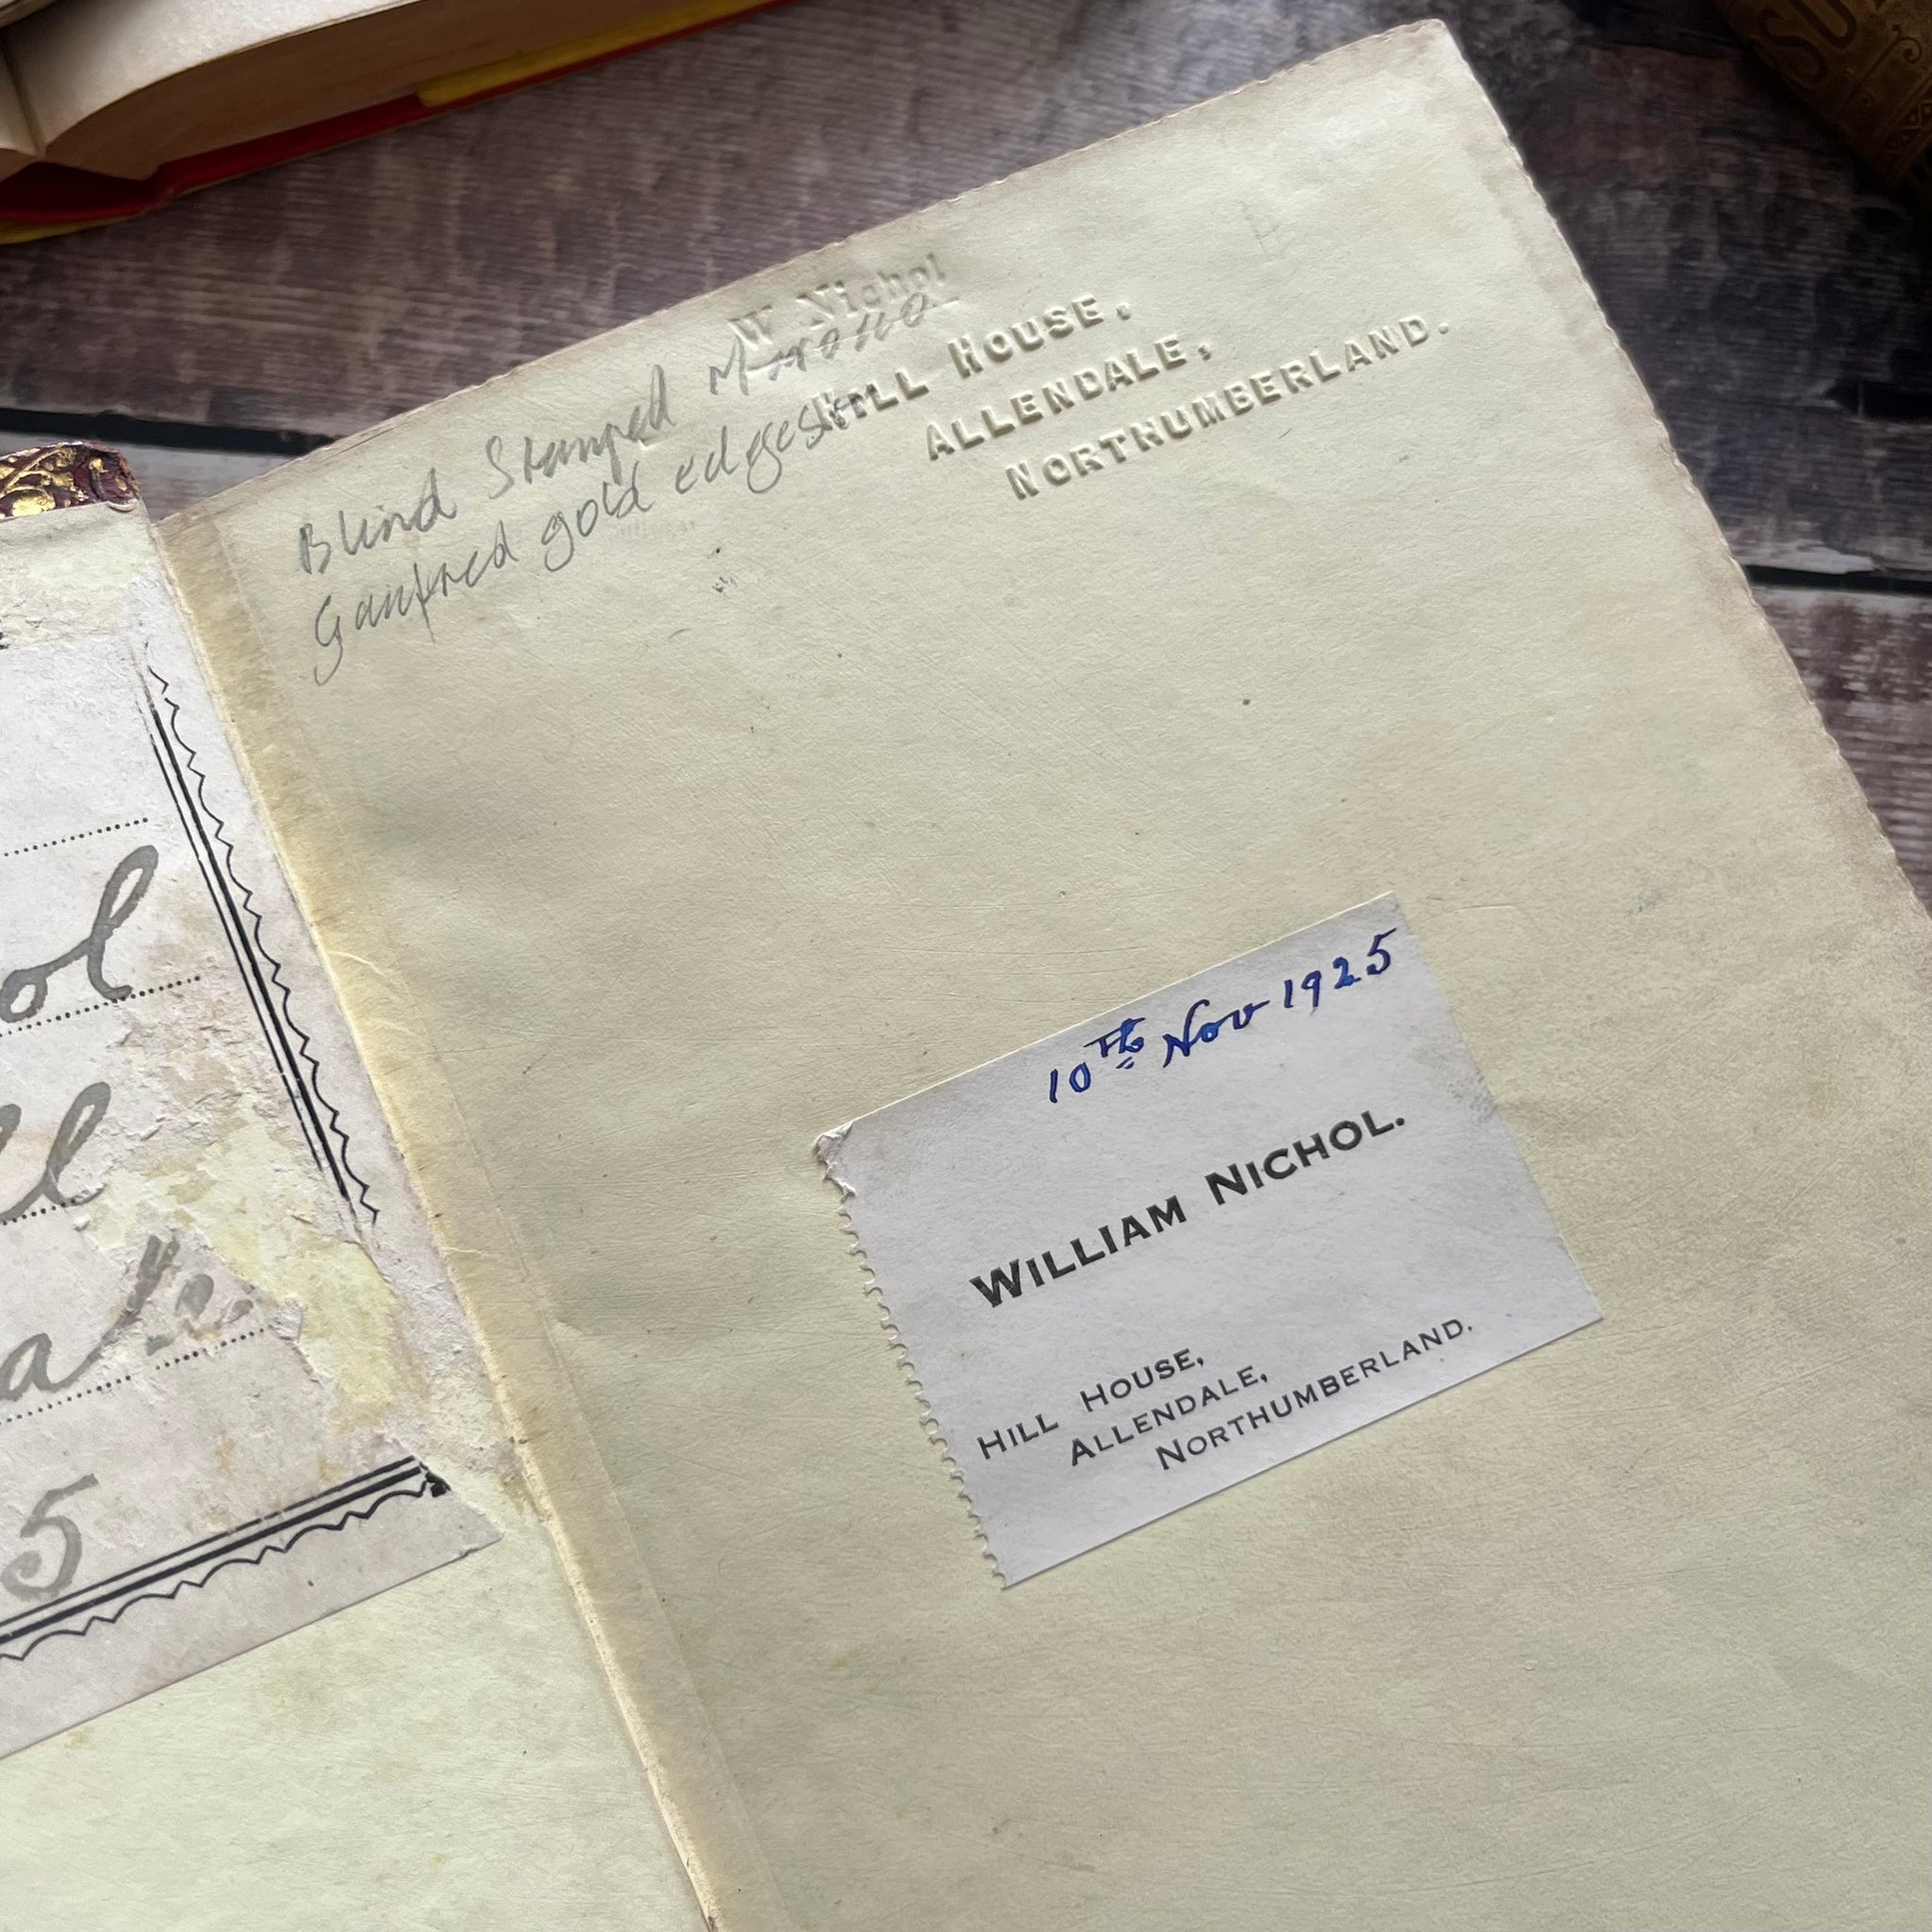 W Nichol
HILL HOUSE,
ALLENDALE,
NORTHUMBERLAND.
Blind Stamped Morocco
Gaufred gold edges
10th Nov 1925
WILLIAM NICHOL.
HILL HOUSE,
ALLENDALE,
NORTHUMBERLAND.
ol
ll
ale
5
SU